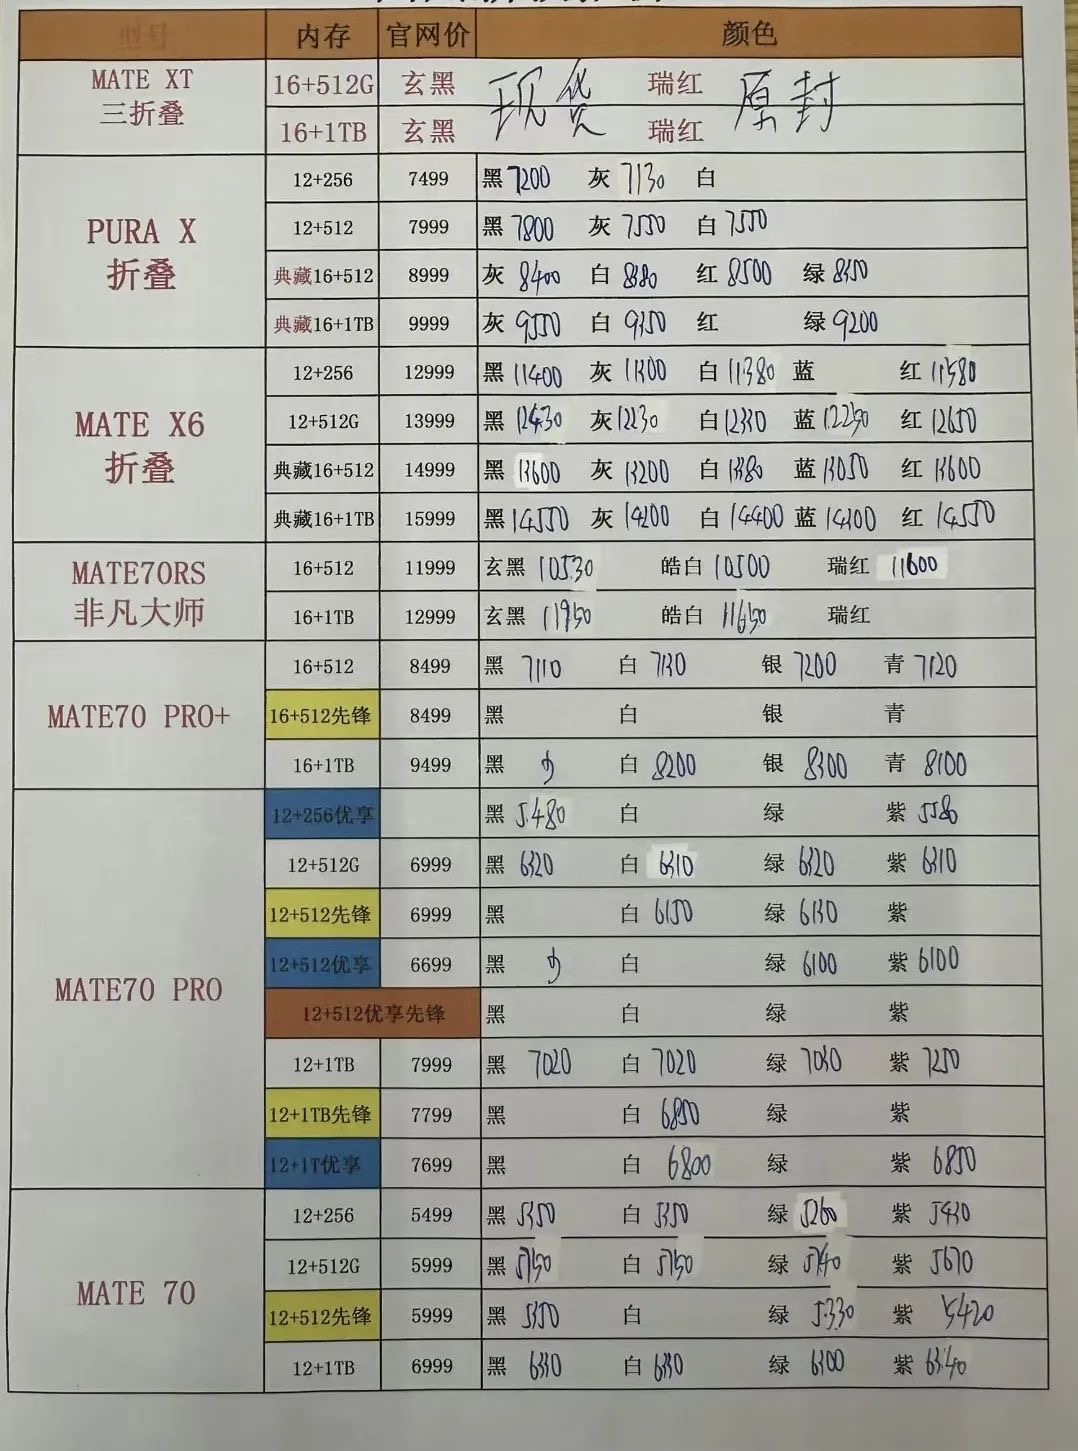 内存 官网价 颜色
MATE XT 三折叠
16+512G 玄黑 现货 瑞红 原封
16+1TB 玄黑 瑞红
PURA X 折叠
12+256 7499 黑 7200 灰 7130 白
12+512 7999 黑 7800 灰 7550 白 7550
典藏16+512 8999 灰 8400 白 8380 红 8500 绿 8350
典藏16+1TB 9999 灰 9550 白 9350 红 绿 9200
MATE X6 折叠
12+256 12999 黑 11400 灰 11300 白 11380 蓝 红 11580
12+512G 13999 黑 12430 灰 12230 白 12330 蓝 12250 红 12650
典藏16+512 14999 黑 13600 灰 13200 白 13380 蓝 13050 红 13600
典藏16+1TB 15999 黑 14550 灰 14200 白 14400 蓝 14300 红 14550
MATE70RS 非凡大师
16+512 11999 玄黑 10530 皓白 10500 瑞红 11600
16+1TB 12999 玄黑 11950 皓白 11650 瑞红
MATE70 PRO+
16+512 8499 黑 7110 白 7130 银 7200 青 7120
16+512先锋 8499 黑 白 银 青
16+1TB 9499 黑 白 8200 银 8300 青 8100
MATE70 PRO
12+256优享 黑 5480 白 绿 紫 5580
12+512G 6999 黑 6320 白 6310 绿 6320 紫 6310
12+512先锋 6999 黑 白 6150 绿 6130 紫
12+512优享 6699 黑 白 绿 6100 紫 6100
12+512优享先锋 黑 白 绿 紫
12+1TB 7999 黑 7020 白 7020 绿 7030 紫 7250
12+1TB先锋 7799 黑 白 6850 绿 紫
12+1T优享 7699 黑 白 6800 绿 紫 6850
MATE 70
12+256 5499 黑 5350 白 5350 绿 5260 紫 5430
12+512G 5999 黑 5750 白 5750 绿 5740 紫 5670
12+512先锋 5999 黑 5350 白 绿 5330 紫 5420
12+1TB 6999 黑 6330 白 6330 绿 6300 紫 6340